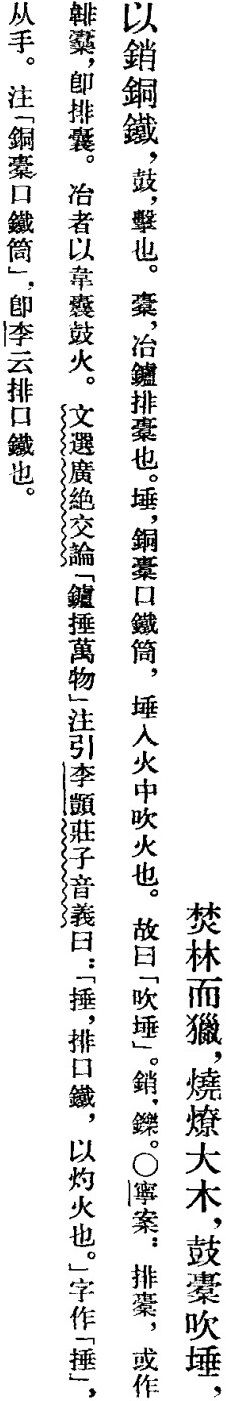 焚林而獵，燒燎大木，鼓橐吹埵，
以銷銅鐵，鼓，擊也。橐，冶鑪排橐也。埵，銅橐口鐵筒，埵入火中吹火也。故曰「吹埵」。銷，鑠。○寧案：排橐，或作
鞴橐，卽排囊。冶者以韋囊鼓火。文選廣絶交論「鑪捶萬物」注引李頤莊子音義曰：「捶，排口鐵，以灼火也。」字作「捶」，
从手。注「銅橐口鐵筒」，卽李云排口鐵也。